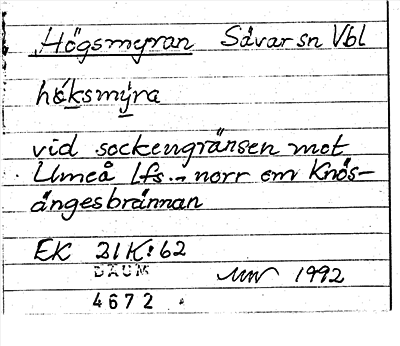 Högsmyran Sävar sn Vbl
höksmýra
vid sockengränsen mot
Umeå lfs. - norr om Knös-
ängesbrännan
EK 21K:62
DAUM
1992
4672